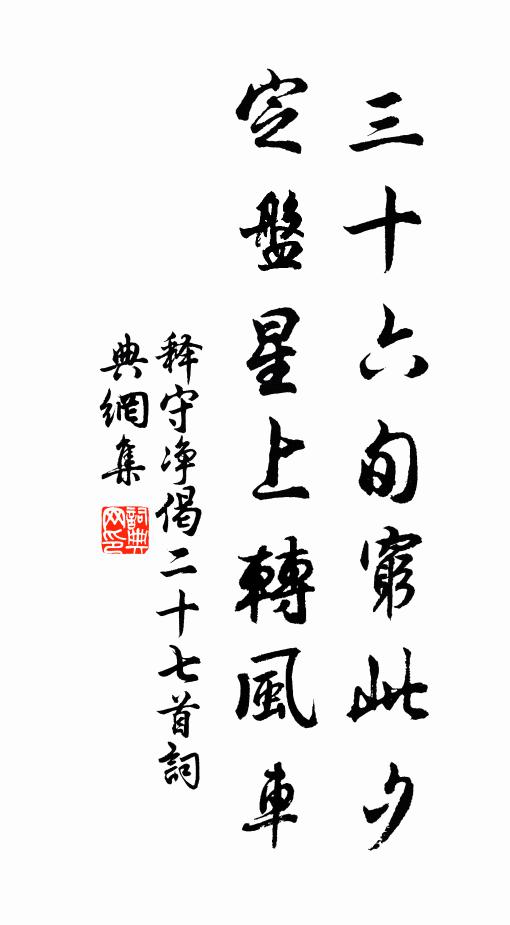 三十六旬窮此夕
定盤星上轉風車
释守净偈二十七首詞
典網集
詞典网印